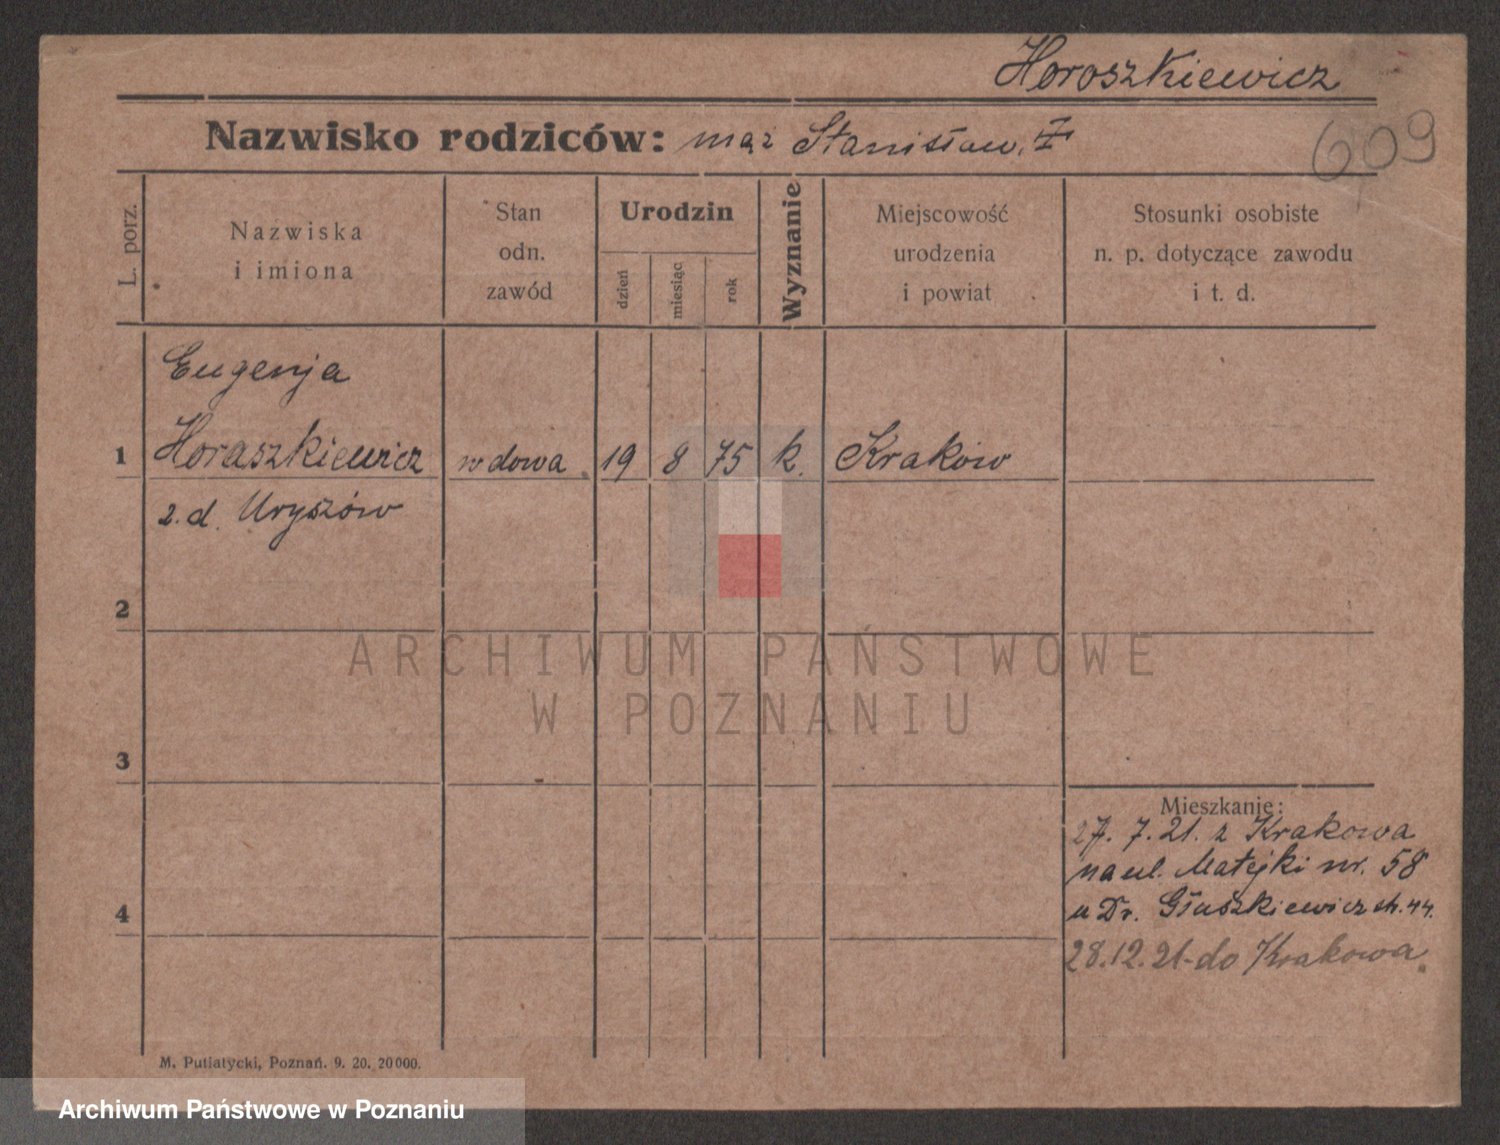 Horoszkiewicz
Nazwisko rodziców: mąż Stanisław. Ŧ
609
L. porz.
Nazwiska
i imiona
Stan
odn.
zawód
Urodzin
dzień
miesiąc
rok
Wyznanie
Miejscowość
urodzenia
i powiat
Stosunki osobiste
n. p. dotyczące zawodu
i t. d.
Eugenja
1 Horaszkiewicz wdowa 19 8 75 k. Kraków
z.d. Uryszów
2
ARCHIWUM PAŃSTWOWE
W POZNANIU
3
Mieszkanie:
27. 7. 21. z Krakowa
na ul. Matejki nr. 58
u Dr. Głuszkiewicz
4
28.12.21 do Krakowa.
M. Putiatycki, Poznań. 9. 20. 20000.
Archiwum Państwowe w Poznaniu